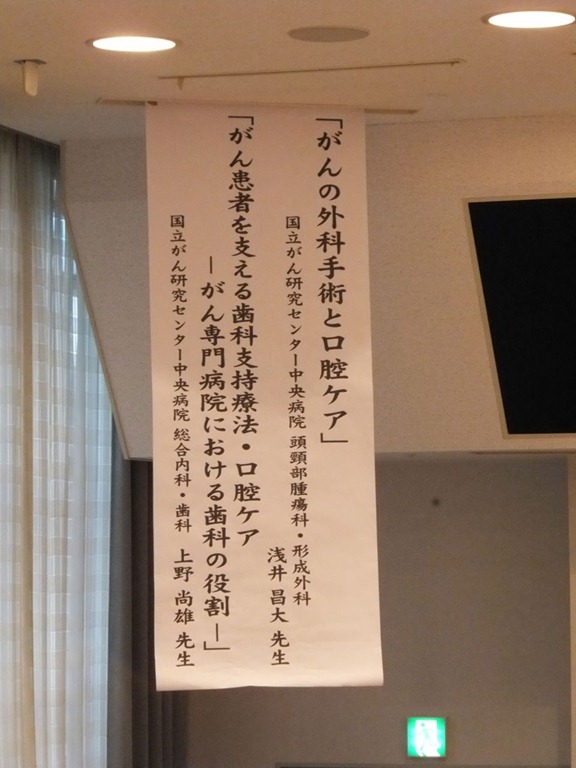 「がんの外科手術と口腔ケア」
国立がん研究センター中央病院 頭頸部腫瘍科・形成外科
浅井 昌大 先生
「がん患者を支える歯科支持療法・口腔ケア
－がん専門病院における歯科の役割－」
国立がん研究センター中央病院 総合内科・歯科 上野 尚雄 先生